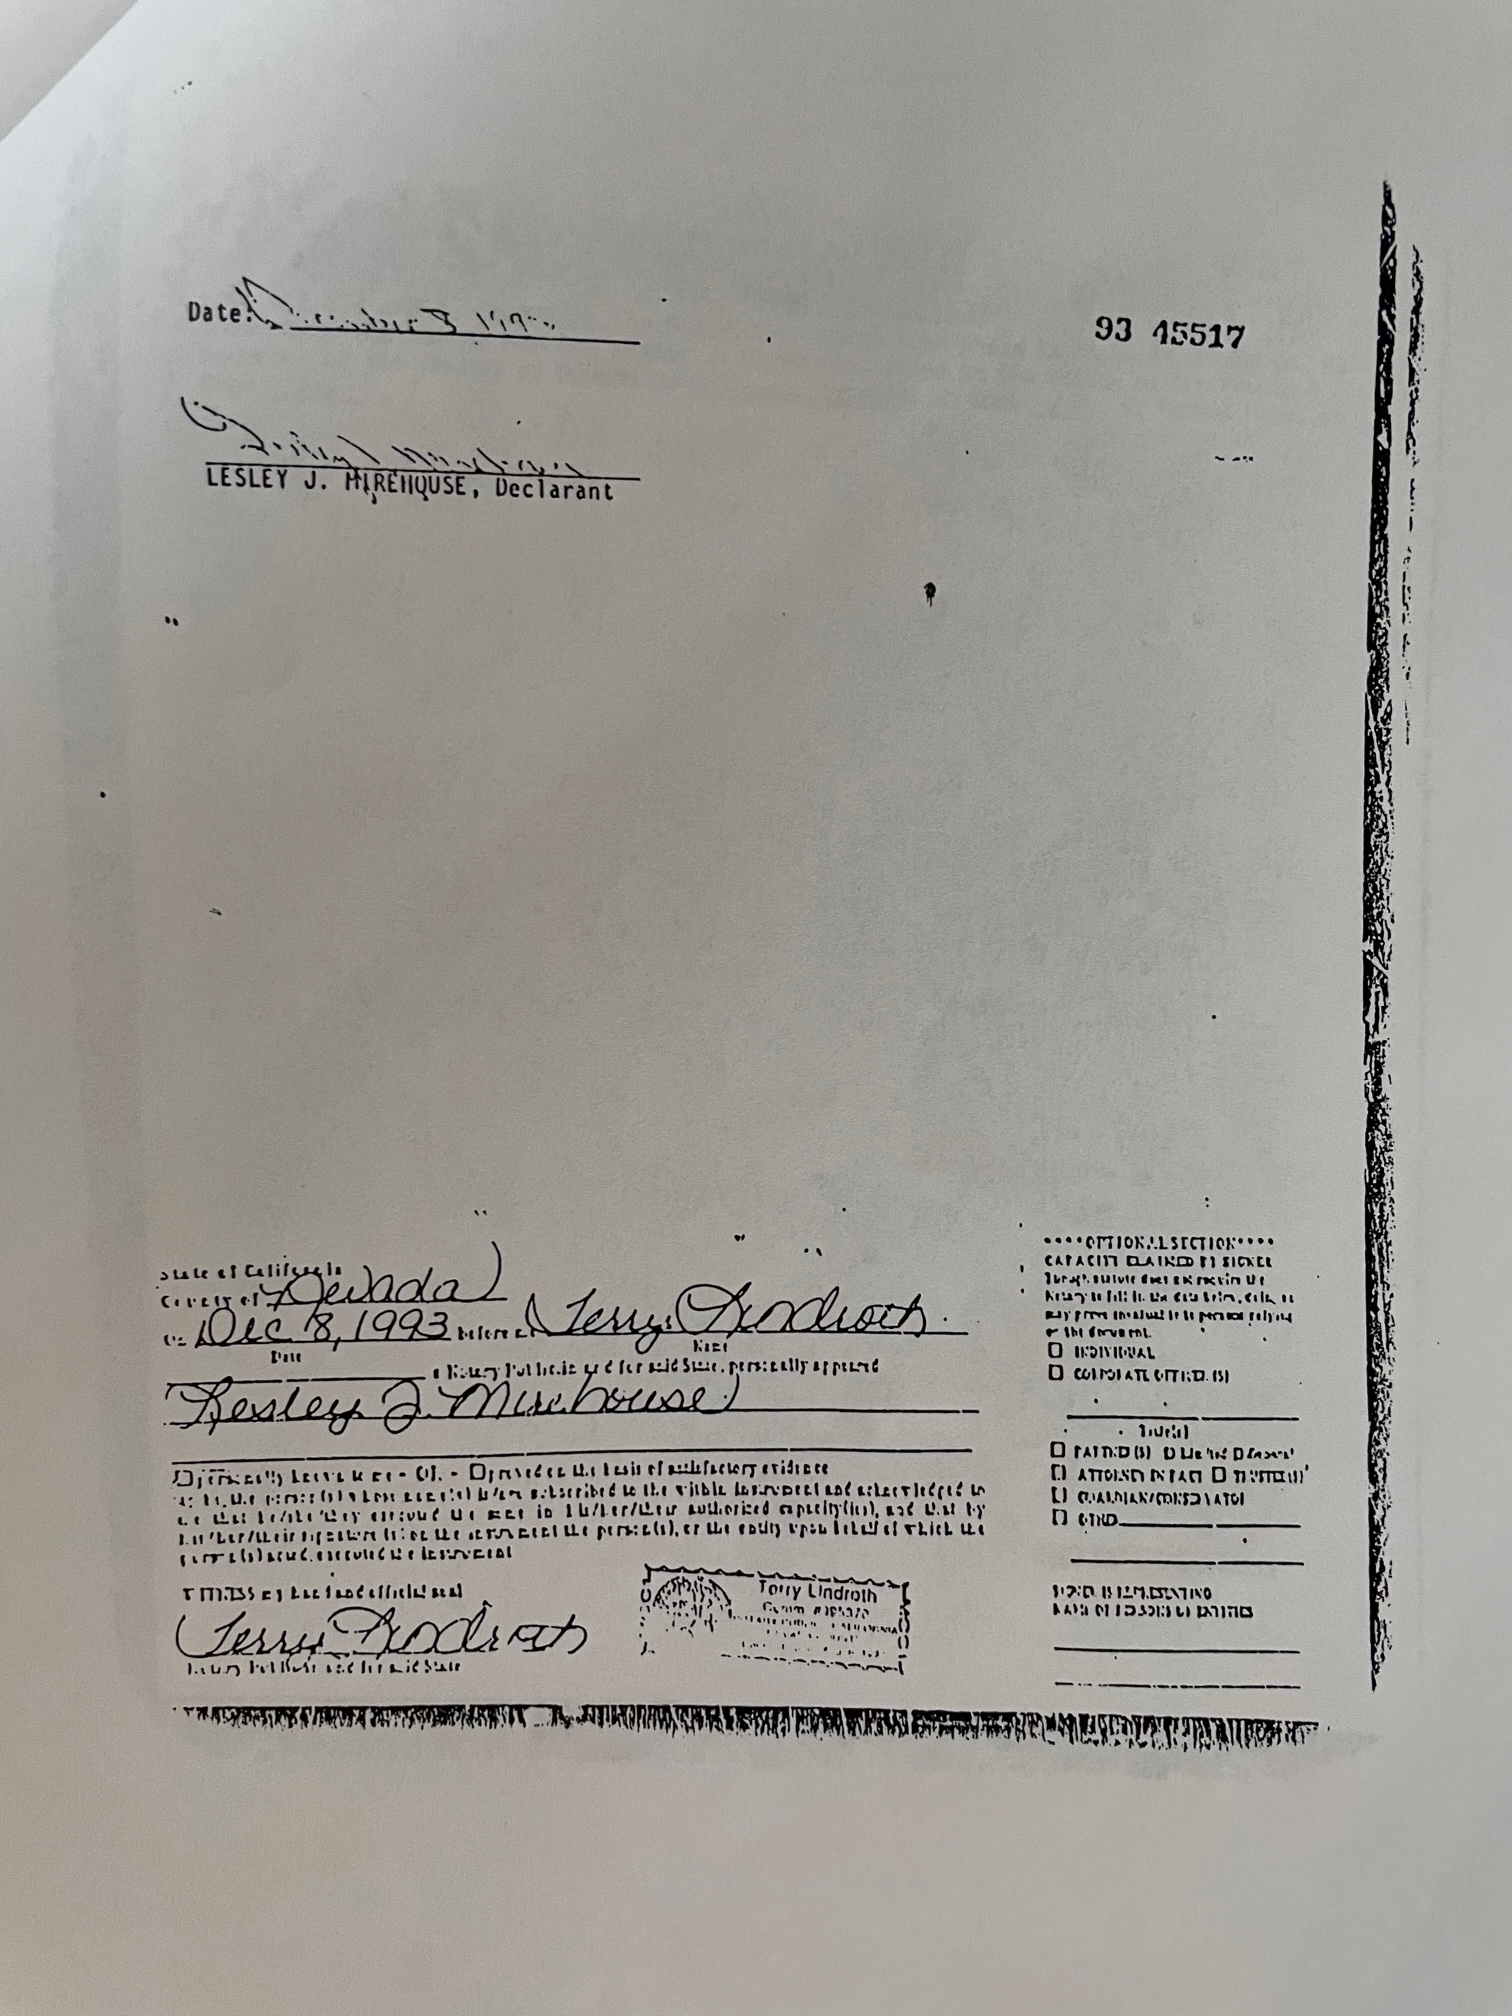 Date: December 8 1993
93 45517
LESLEY J. MIREHOUSE, Declarant
State of California
County of Nevada
On Dec 8, 1993 before me Terry Lindroth
Date
Name
a Notary Public in and for said State, personally appeared
Lesley J. Mirehouse
personally known to me - OR - proved on the basis of satisfactory evidence
to be the person(s) whose name(s) is/are subscribed to the within instrument and acknowledged to
me that he/she/they executed the same in his/her/their authorized capacity(ies), and that by
his/her/their signature(s) on the instrument the person(s), or the entity upon behalf of which the
person(s) acted, executed the instrument
WITNESS my hand and official seal
Terry Lindroth
Notary Public in and for said State
Terry Lindroth
Comm.
CALIFORNIA
****OPTIONAL SECTION****
CAPACITY CLAIMED BY SIGNER
Though statute does not require the
Notary to fill in the data below, doing so
may prove invaluable to persons relying
on the document.
INDIVIDUAL
CORPORATE OFFICER(S)
Title(s)
PARTNER(S) Limited General
ATTORNEY IN FACT TRUSTEE(S)
GUARDIAN/CONSERVATOR
OTHER
SIGNER IS REPRESENTING
NAME OF PERSON(S) OR ENTITIES